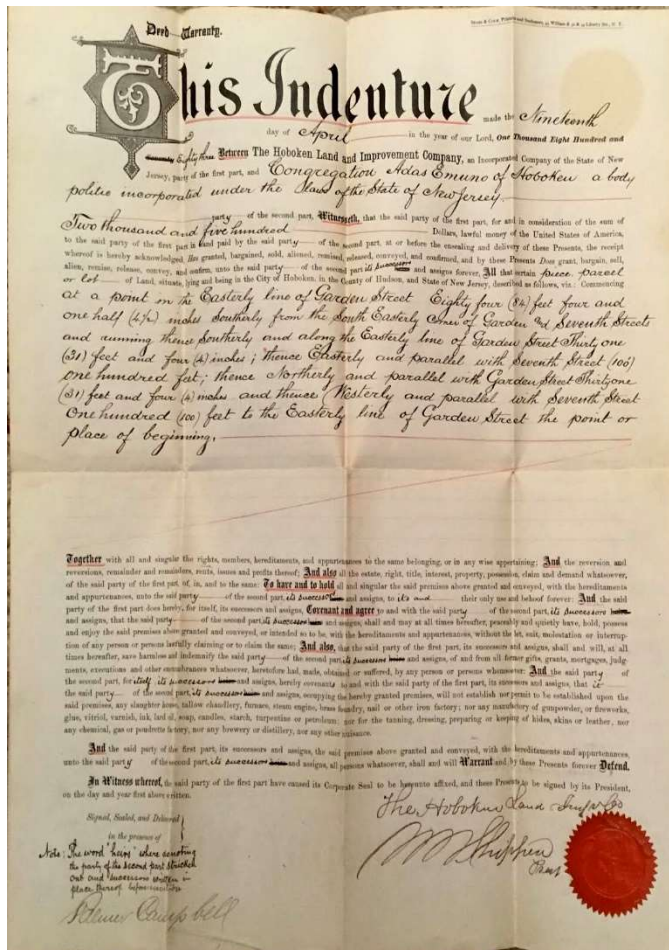 Deed—Warranty.
This Indenture made the Nineteenth
day of April in the year of our Lord, One Thousand Eight Hundred and
Eighty three Between The Hoboken Land and Improvement Company, an Incorporated Company of the State of New
Jersey, party of the first part, and Congregation Adas Emuno of Hoboken a body
politic incorporated under the Laws of the State of New Jersey
party of the second part, Witnesseth, that the said party of the first part, for and in consideration of the sum of
Two thousand and five hundred Dollars, lawful money of the United States of America,
to the said party of the first part in hand paid by the said party of the second part, at or before the ensealing and delivery of these Presents, the receipt
whereof is hereby acknowledged, Has granted, bargained, sold, aliened, remised, released, conveyed, and confirmed, and by these Presents Does grant, bargain, sell,
alien, remise, release, convey, and confirm, unto the said party of the second part its successors and assigns forever, All that certain piece parcel
or lot of Land, situate, lying and being in the City of Hoboken, in the County of Hudson, and State of New Jersey, described as follows, viz: Commencing
at a point on the Easterly line of Garden Street Eighty four (84) feet four and
one half (4½) inches Southerly from the South Easterly corner of Garden and Seventh Streets
and running thence Southerly and along the Easterly line of Garden Street Thirty one
(31) feet and four (4) inches; thence Easterly and parallel with Seventh Street (100)
one hundred feet; thence Northerly and parallel with Garden Street Thirty one
(31) feet and four (4) inches and thence Westerly and parallel with Seventh Street
One hundred (100) feet to the Easterly line of Garden Street the point or
place of beginning.
Together with all and singular the rights, members, hereditaments, and appurtenances to the same belonging, or in any wise appertaining; And the reversion and
reversions, remainder and remainders, rents, issues and profits thereof; And also all the estate, right, title, interest, property, possession, claim and demand whatsoever,
of the said party of the first part, of, in, and to the same: To have and to hold all and singular the said premises above granted and conveyed, with the hereditaments
and appurtenances, unto the said party of the second part, its successors and assigns, to its and their only use and behoof forever: And the said
party of the first part does hereby, for itself, its successors and assigns, Covenant and agree to and with the said party of the second part, its successors
and assigns, that the said party of the second part, its successors and assigns, shall and may at all times hereafter, peaceably and quietly have, hold, possess
and enjoy the said premises above granted and conveyed, or intended so to be, with the hereditaments and appurtenances, without the let, suit, molestation or interrup-
tion of any person or persons lawfully claiming or to claim the same; And also, that the said party of the first part, its successors and assigns, shall and will, at all
times hereafter, save harmless and indemnify the said party of the second part, its successors and assigns, of and from all former gifts, grants, mortgages, judg-
ments, executions and other encumbrances whatsoever, heretofore had, made, obtained or suffered, by any person or persons whomsoever: And the said party of
the second part, for itself its successors and assigns, hereby covenants to and with the said party of the first part, its successors and assigns, that it
the said party of the second part, its successors and assigns, occupying the hereby granted premises, will not establish nor permit to be established upon the
said premises, any slaughter house, tallow chandlery, furnace, steam engine, brass foundry, nail or other iron factory; nor any manufactory of gunpowder, or fireworks,
glue, vitriol, varnish, ink, lard oil, soap, candles, starch, turpentine or petroleum; nor for the tanning, dressing, preparing or keeping of hides, skins or leather, nor
any chemical, gas or poudrette factory, nor any brewery or distillery, nor any other nuisance.
And the said party of the first part, its successors and assigns, the said premises above granted and conveyed, with the hereditaments and appurtenances,
unto the said party of the second part, its successors and assigns, all persons whatsoever, shall and will Warrant and by these Presents forever Defend.
In Witness whereof, the said party of the first part have caused its Corporate Seal to be hereunto affixed, and these Presents to be signed by its President,
on the day and year first above written.
Signed, Sealed, and Delivered
in the presence of
The Hoboken Land Impt Co
Pres
Note: The word "heirs" where denoting
the party of the second part stricken
out and successors written in
place thereof before execution
Palmer Campbell